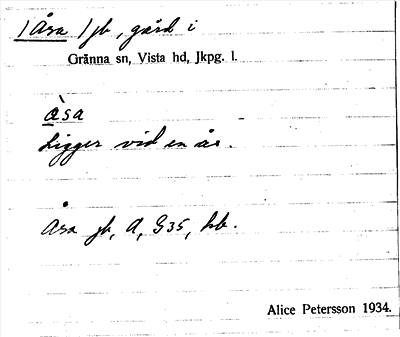 /Åsa/ jb, gård i
Gränna sn, Vista hd, Jkpg. l.
å̀sa
Ligger vid en ås.
Åsa jb, A, G35, hb.
Alice Petersson 1934.